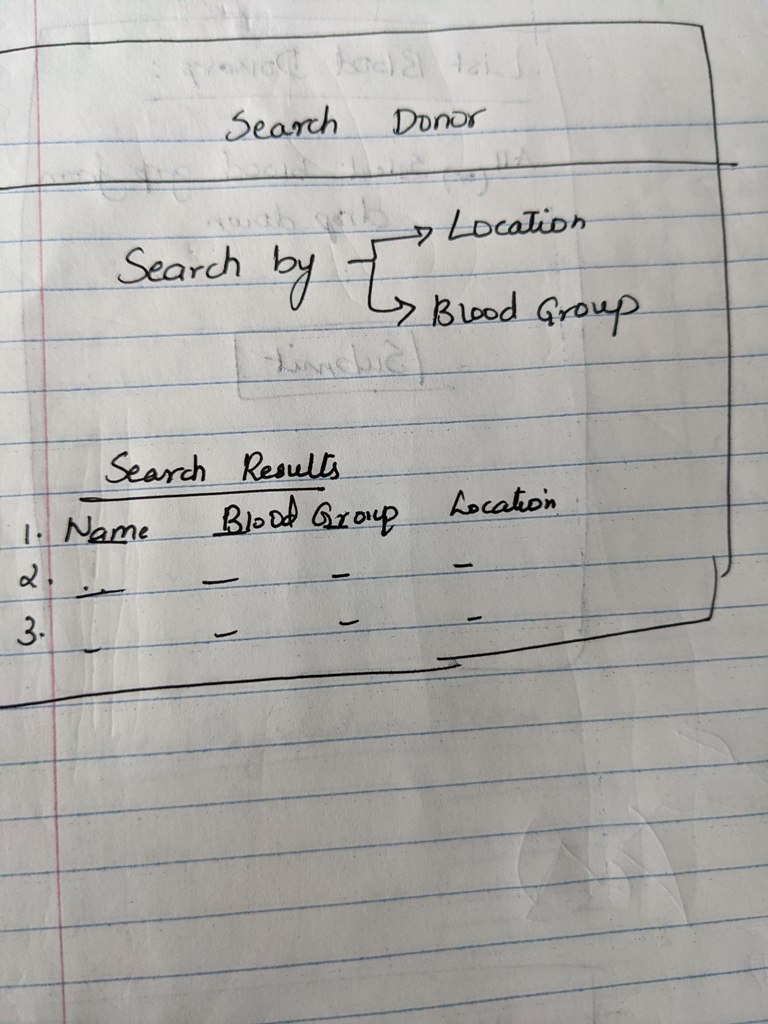 Search Donor
Search by
Location
Blood Group
Search Results
1. Name Blood Group Location
2. .. — - -
3. - - - -